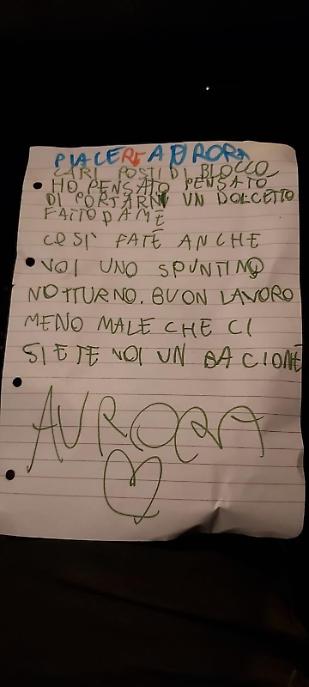 PIACERE AURORA
CARI POSTI DI BLOCCO
HO PENSATO PENSATO
DI PORTARVI UN DOLCETTO
FATTO DA ME
COSÌ FATE ANCHE
VOI UNO SPUNTINO
NOTTURNO. BUON LAVORO
MENO MALE CHE CI
SIETE VOI UN BACIONE
AURORA